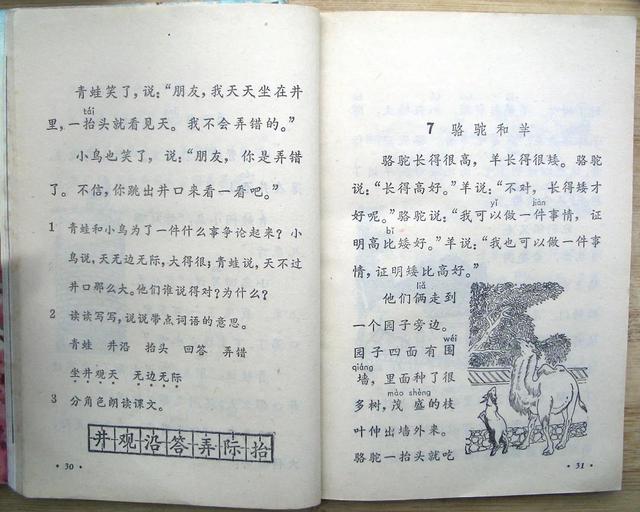 青蛙笑了，说：“朋友，我天天坐在井
tái
里，一抬头就看见天。我不会弄错的。”
小鸟也笑了，说：“朋友，你是弄错
了。不信，你跳出井口来看一看吧。”
1 青蛙和小鸟为了一件什么事争论起来？小
鸟说，天无边无际，大得很；青蛙说，天不过
井口那么大。他们谁说得对？为什么？
2 读读写写，说说带点词语的意思。
青蛙 井沿 抬头 回答 弄错
坐井观天 无边无际
3 分角色朗读课文。
井观沿答弄际抬
·30·
7 骆驼和羊
骆驼长得很高，羊长得很矮。骆驼
说：“长得高好。”羊说：“不对，长得矮才
yǐ jiàn
好呢。”骆驼说：“我可以做一件事情，证
bǐ
明高比矮好。”羊说：“我也可以做一件事
情，证明矮比高好。”
liǎ
他们俩走到
一个园子旁边。
wéi
园子四面有围
qiáng
墙，里面种了很
mào shèng
多树，茂盛的枝
叶伸出墙外来。
骆驼一抬头就吃
·31·